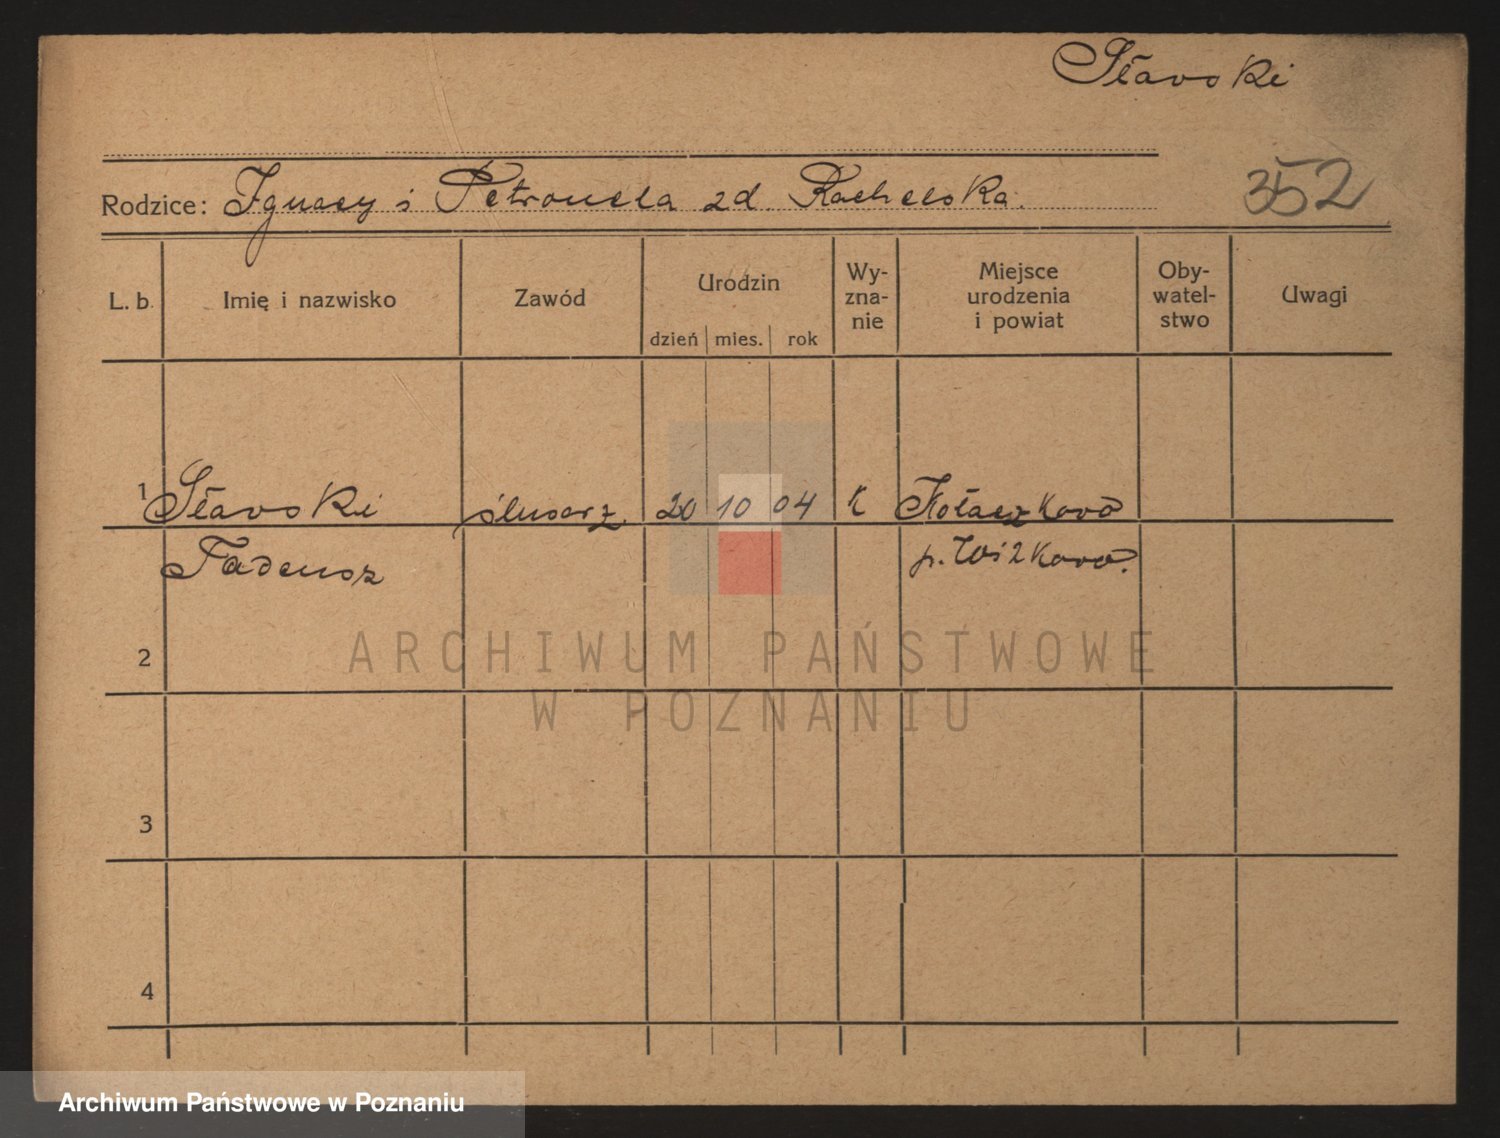 Sławski
Rodzice: Ignacy i Petronela zd. Kachelska.
352
L. b. Imię i nazwisko Zawód Urodzin Wy-zna-nie Miejsce urodzenia i powiat Oby-watel-stwo Uwagi
dzień mies. rok
1 Sławski ślusarz. 20 10 04 k Kołaczkowo
Tadeusz p. Witkowo.
2
ARCHIWUM PAŃSTWOWE
W POZNANIU
3
4
Archiwum Państwowe w Poznaniu